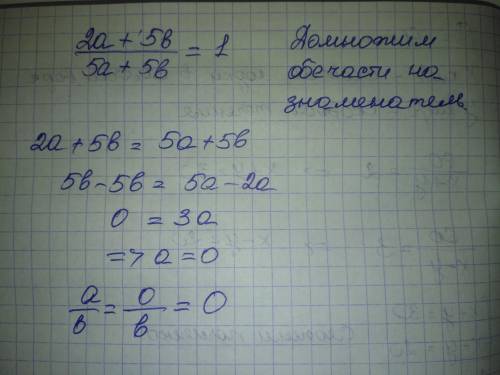 2a + 5b / 5a + 5b = 1
Домножим
обе части на
знаменатель
2a + 5b = 5a + 5b
5b - 5b = 5a - 2a
0 = 3a
=> a = 0
a/b = 0/b = 0